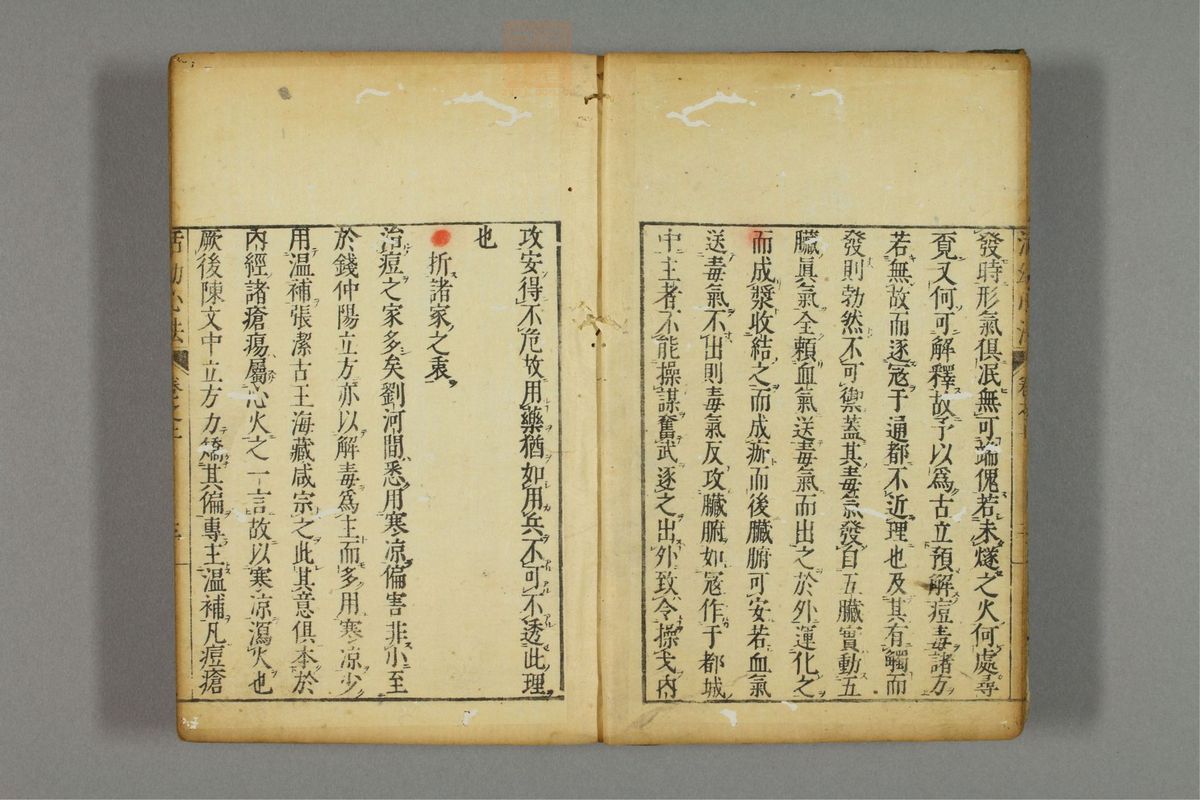 發時形氣俱泯無可端倪若未燧之火何處尋
覔又何可解釋故予以爲古立預解痘毒諸方
若無故而逐寇于通都不近理也及其有觸而
發則勃然不可禦蓋其毒氣發自五臟實動五
臟眞氣全賴血氣送毒氣而出之於外運化之
而成漿收結之而成痂而後臟腑可安若血氣
送毒氣不出則毒氣反攻臟腑如寇作于都城
中主者不能操謀奮武逐之出外致令操戈内
攻安得不危故用藥猶如用兵不可不透此理
也
折諸家之衷
治痘之家多矣劉河間悉用寒凉偏害非小至
於錢仲陽立方亦以解毒爲主而多用寒凉少
用温補張潔古王海藏咸宗之此其意俱本於
内經諸瘡瘍屬心火之一言故以寒凉瀉火也
厥後陳文中立方力矯其偏專主温補凡痘瘡
活幼心法
卷之